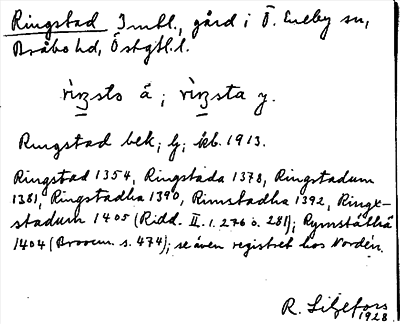 Ringstad Jmtl., gård i Ö. Eneby sn,
Bråbo hd, Östgtl.l.
rìŋsto å ; rìŋsta y.
Ringstad bek; Gj; kb. 1913.
Ringstad 1354, Ringstada 1378, Ringstadum
1381, Ringstadha 1390, Rinstadha 1392, Ringx-
stadum 1405 (Ridd. II. 1. 276 o. 281); Rymstathä
1404 (Brocm. s. 474); se även registret hos Nordén.
R. Liljefors
1928